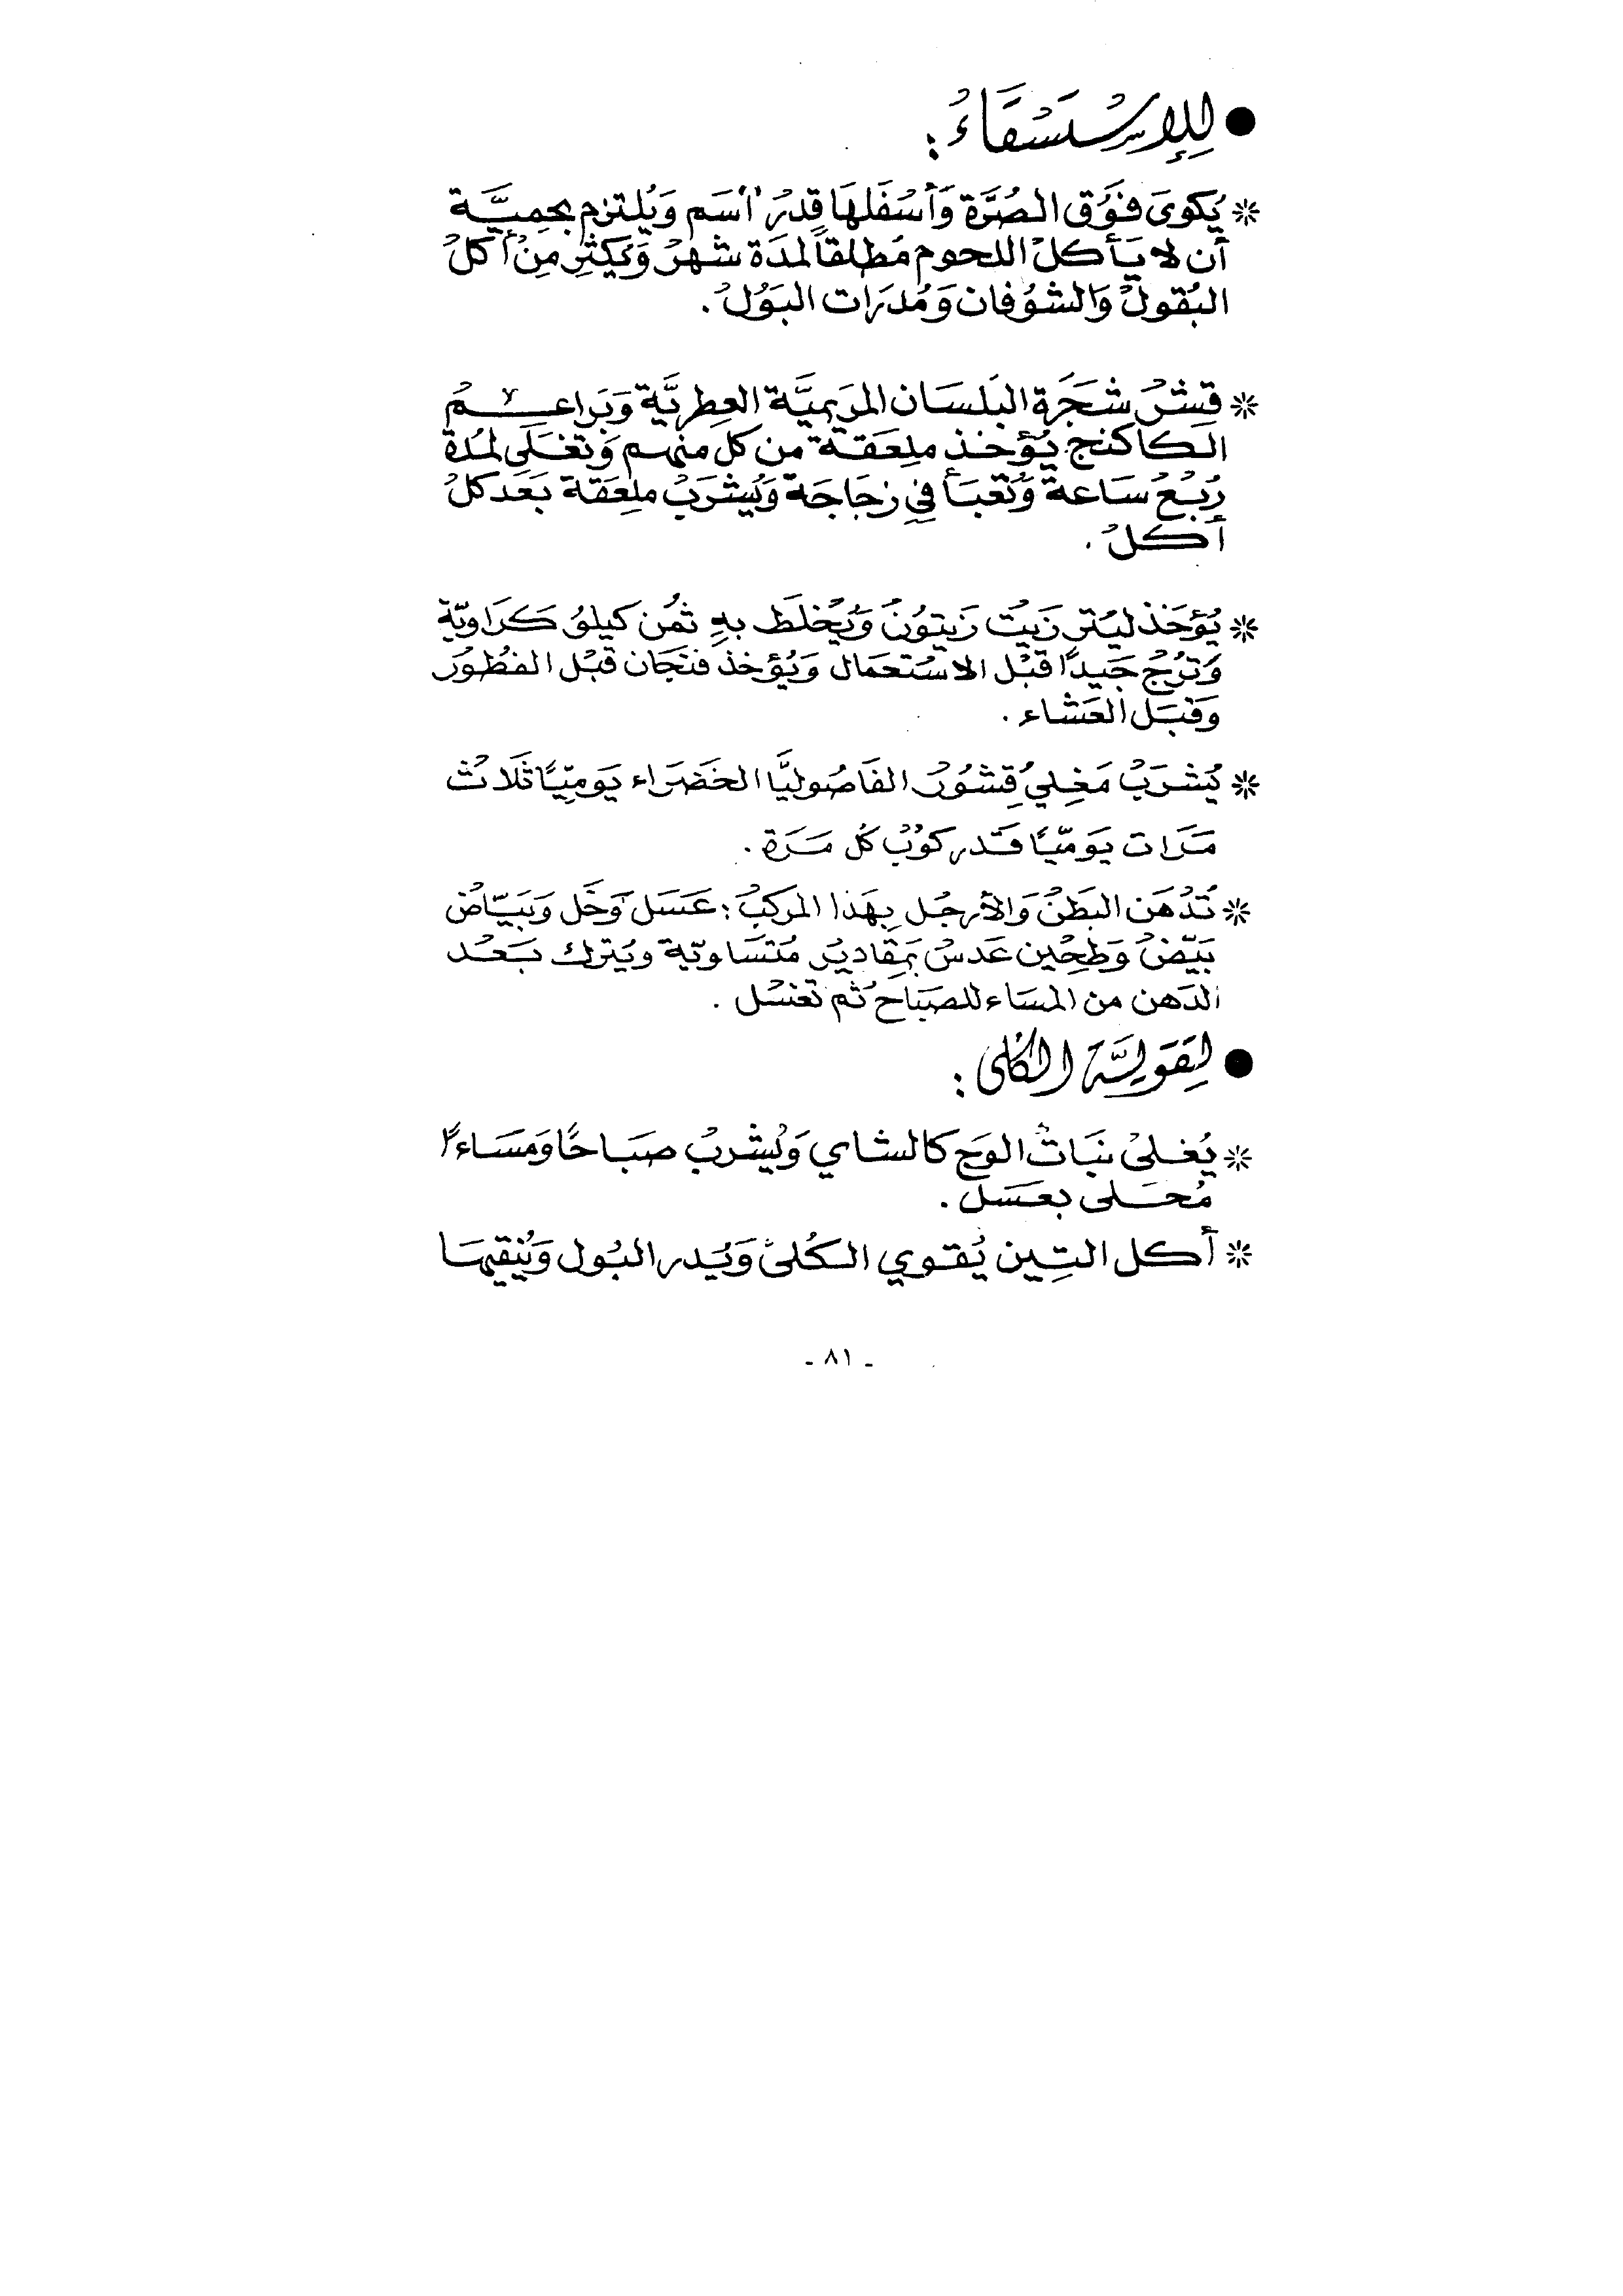 ● لِلإِسْتسْقَاءُ :
* يُكوىَ فَوْق الصُرَّة وَأسْفَلهَا قِدرُ "١"سَم وَيُلتزم بحِميَّة
أن لا يَأكلْ اللحوم مُطلقاً لمدَة شهرْ وَيَكثِر مِنْ أكلُ
البُقولْ وَالشوُفان وَمُدرَات البَوُلْ .
* قِشرْ شجَرَة البَلسَان المرَيميَّة العِطريَّة وَبَراعمُ
الكاكنج يُؤخذ ملِعَقة من كل منهم وَتغلَى لمُدة
رُبْعُ سَاعة وَتُعَبأ فِي زجَاجَة وَيُشرَبْ ملِعَقة بَعَد كلُ
أكلْ .
* يُؤخَذ ليَتر زَيتْ زَيتوُنْ وَيُخْلَط بهِ ثمُن كيلوُ كَرَاويّة
وَترُجْ جَيداً قبْل الاسْتعمَال وَيُؤخذ فنجَان قبْل الفطُورْ
وَقبَل العَشاء .
* يُشرَبْ مَغِليُ قِشوُرْ الفَاصُوليَّا الخَضرَاء يَومِيّاً ثلَاثْ
مَرَات يَوَميّاً قَدر كوُبْ كُل مَرَة .
* تُدْهَن البَطنْ وَالأرجُل بِهَذا المركبْ : عَسَل وَخَل وَبَيَاضْ
بَيّضْ وَطِحِين عَدسْ بمَقَاديرْ مُتسَاويّة ويُترك بَعْد
الدَهن من المسَاء للصبَاحْ ثم تغسْل .
● لِتقَوليَّة الكُلى :
* يُغلىْ نبَاتْ الوَج كالشاي وَيُشربْ صبَاحًا وَمَسَاءً
مُحَلى بعَسَل .
* أكل التِين يُقوي الكُلىْ وَيُدر البُول وَيُنِقيهَا
- ٨١ -